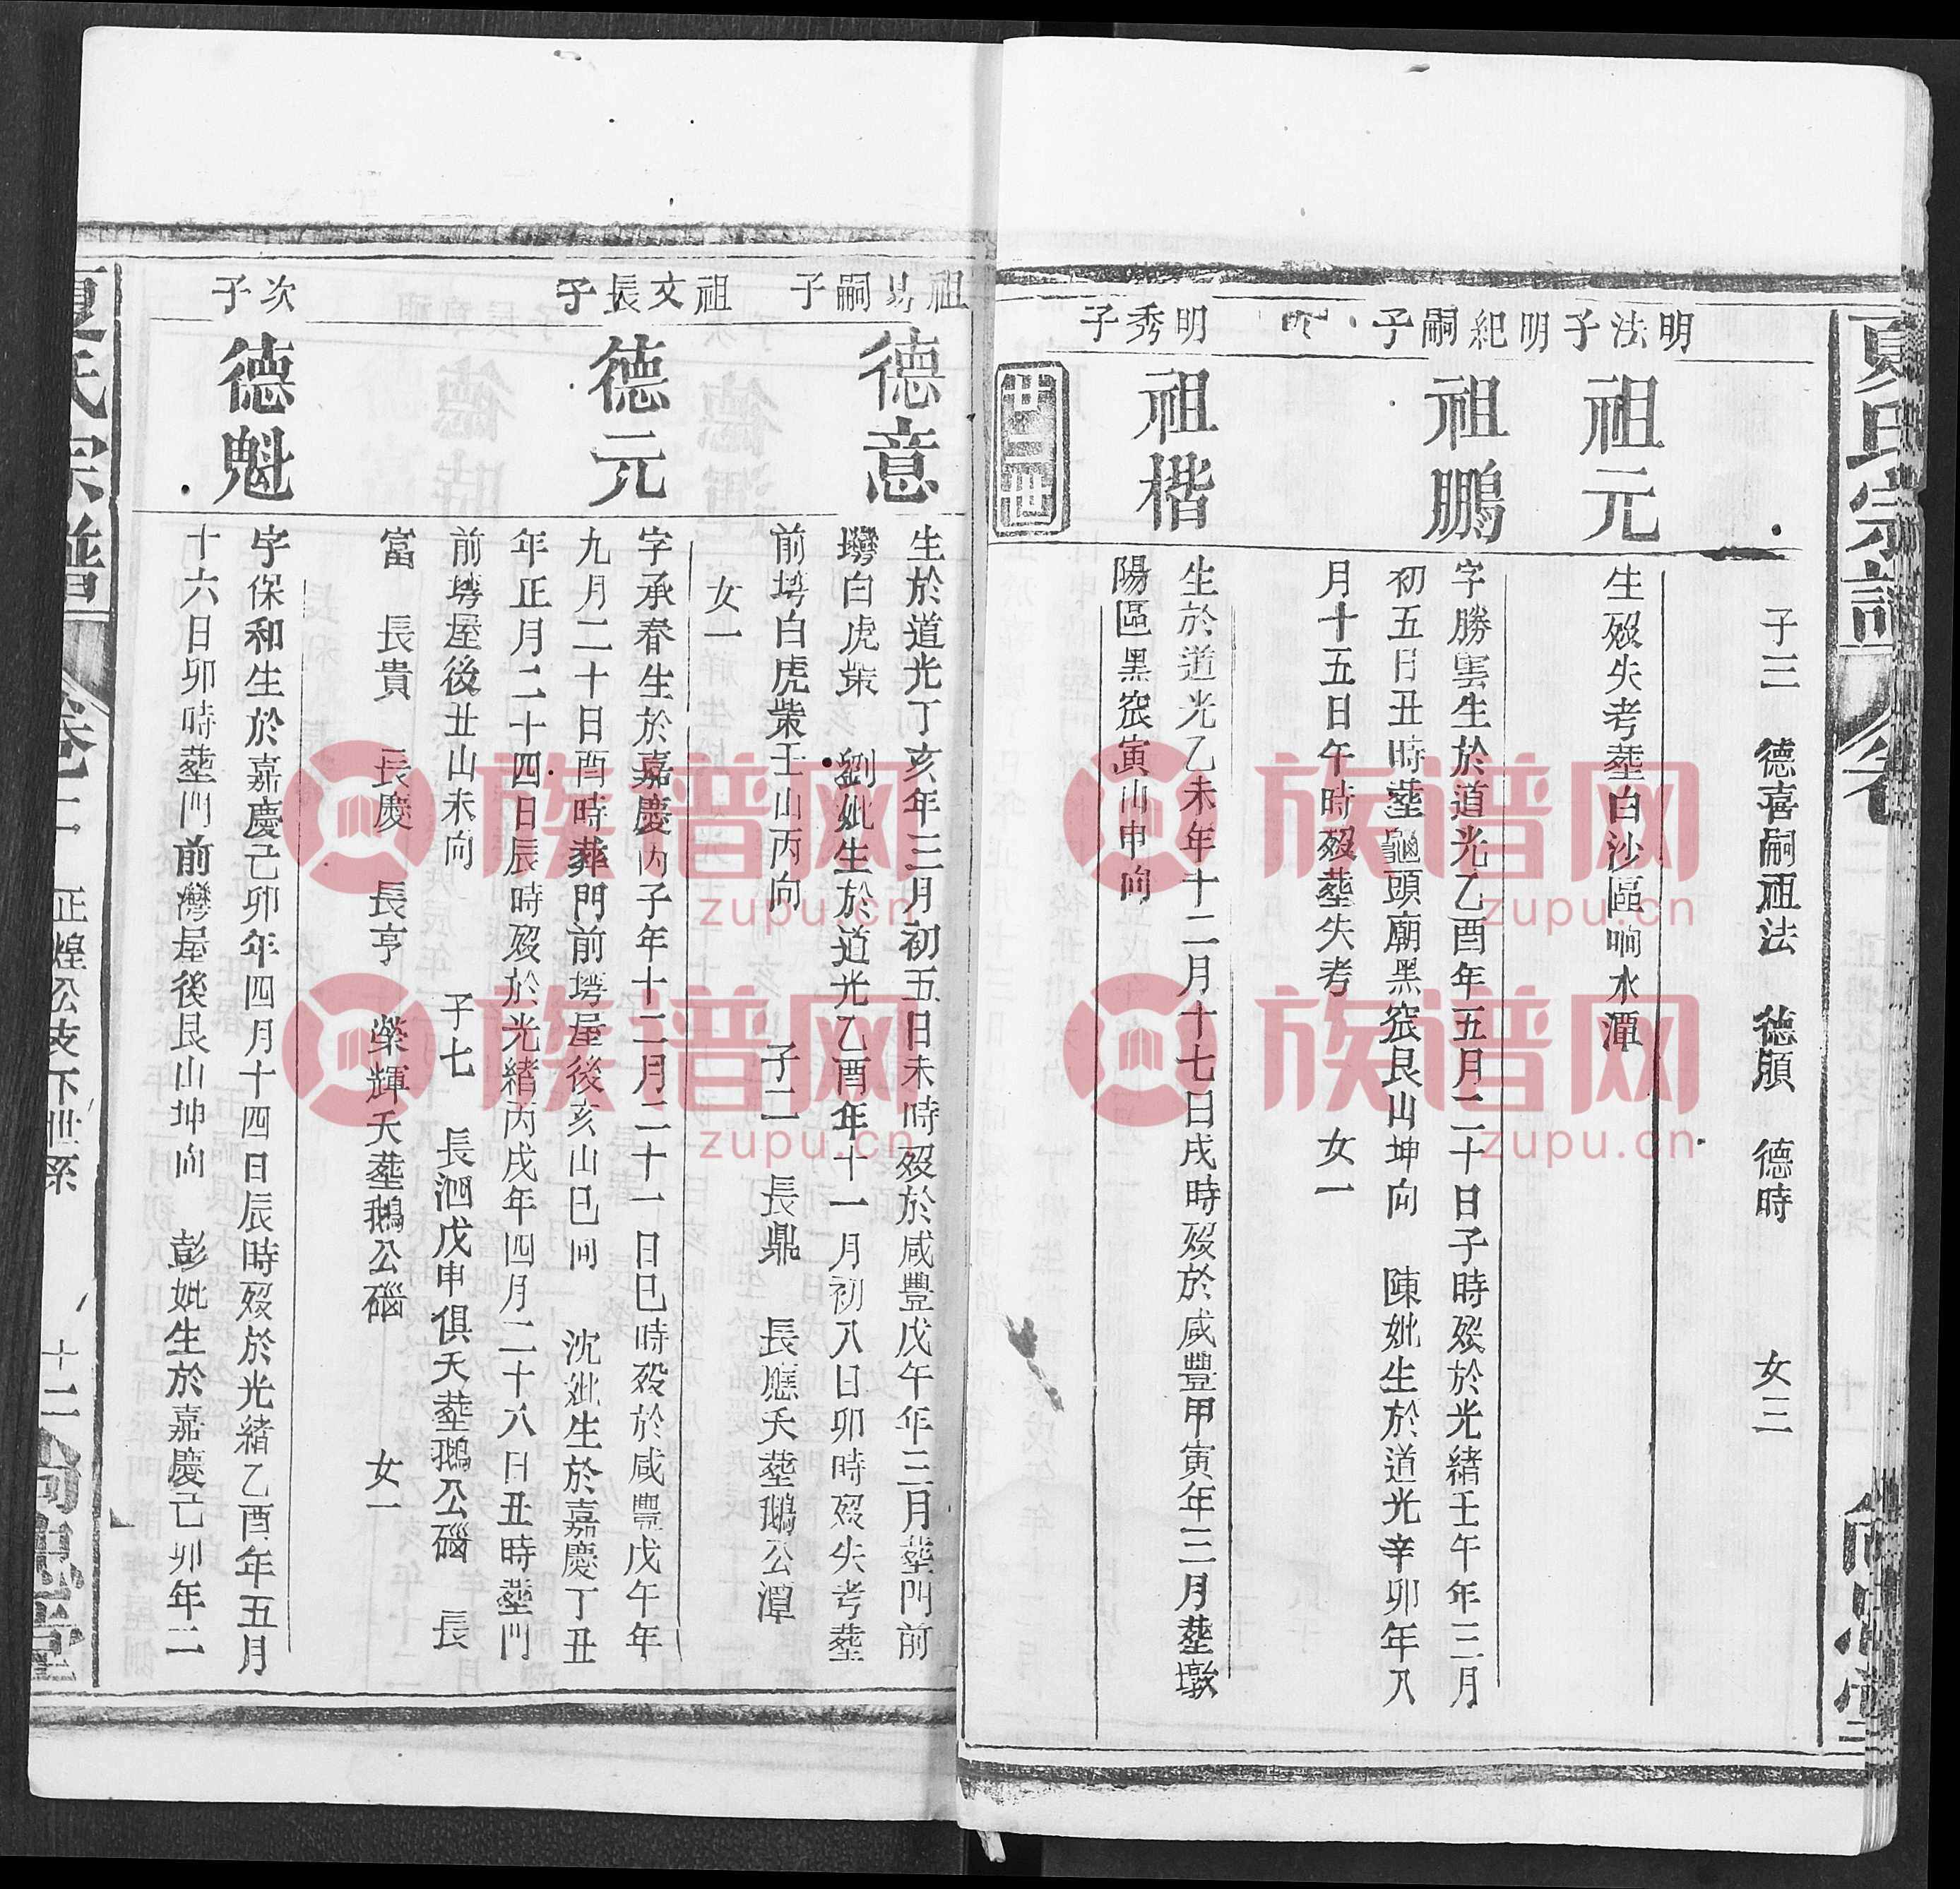 夏氏宗譜
尚忠堂
子三　德喜嗣祖法　德順　德時　女三
明法子
祖元
生歿失考塟白沙區响水潭
明紀嗣子
祖鵬
字勝雲生於道光乙酉年五月二十日子時歿於光緒壬午年三月
初五日丑時塟龜頭廟黑窊艮山坤向　陳妣生於道光辛卯年八
月十五日午時歿塟失考　女一
明秀子
祖楷
生於道光乙未年十二月十七日戌時歿於咸豐甲寅年三月塟墩
陽區黑窊寅山申向
廿二世
祖易嗣子
德意
生於道光丁亥年三月初五日未時歿於咸豐戊午年三月塟門前
塆白虎柴　劉妣生於道光乙酉年十一月初八日卯時歿失考塟
前塆白虎柴壬山丙向　子二　長鼎　長應夭塟鵝公潭
女一
祖文長子
德元
字承春生於嘉慶丙子年十二月二十一日巳時歿於咸豐戊午年
九月二十日酉時葬門前塆屋後亥山巳向　沈妣生於嘉慶丁丑
年正月二十四日辰時歿於光緒丙戌年四月二十八日丑時塟門
前塆屋後丑山未向　子七　長泗戊申俱夭塟鵝公磖　長
富　長貴　長慶　長亨　榮輝夭塟鵝公磖　女一
次子
德魁
字保和生於嘉慶己卯年四月十四日辰時歿於光緒乙酉年五月
十六日卯時塟門前灣屋後艮山坤向　彭妣生於嘉慶己卯年二
夏氏宗譜　卷十二　正煌公支下世系　十二　尚忠堂
族谱网
zupu.cn
族谱网
zupu.cn
族谱网
zupu.cn
族谱网
zupu.cn